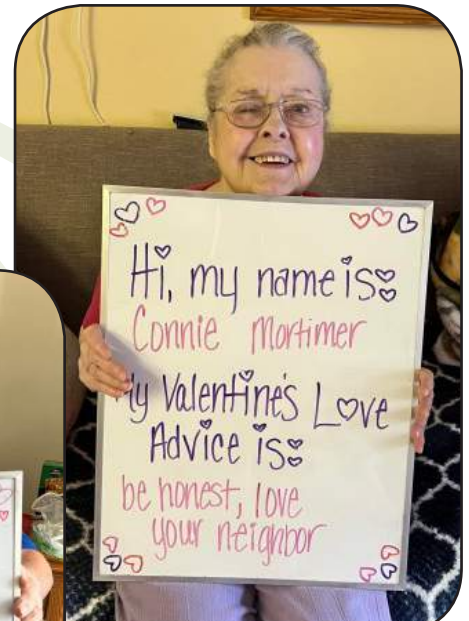 Hi, my name is:
Connie Mortimer
My Valentine's Love
Advice is:
be honest, love
your neighbor